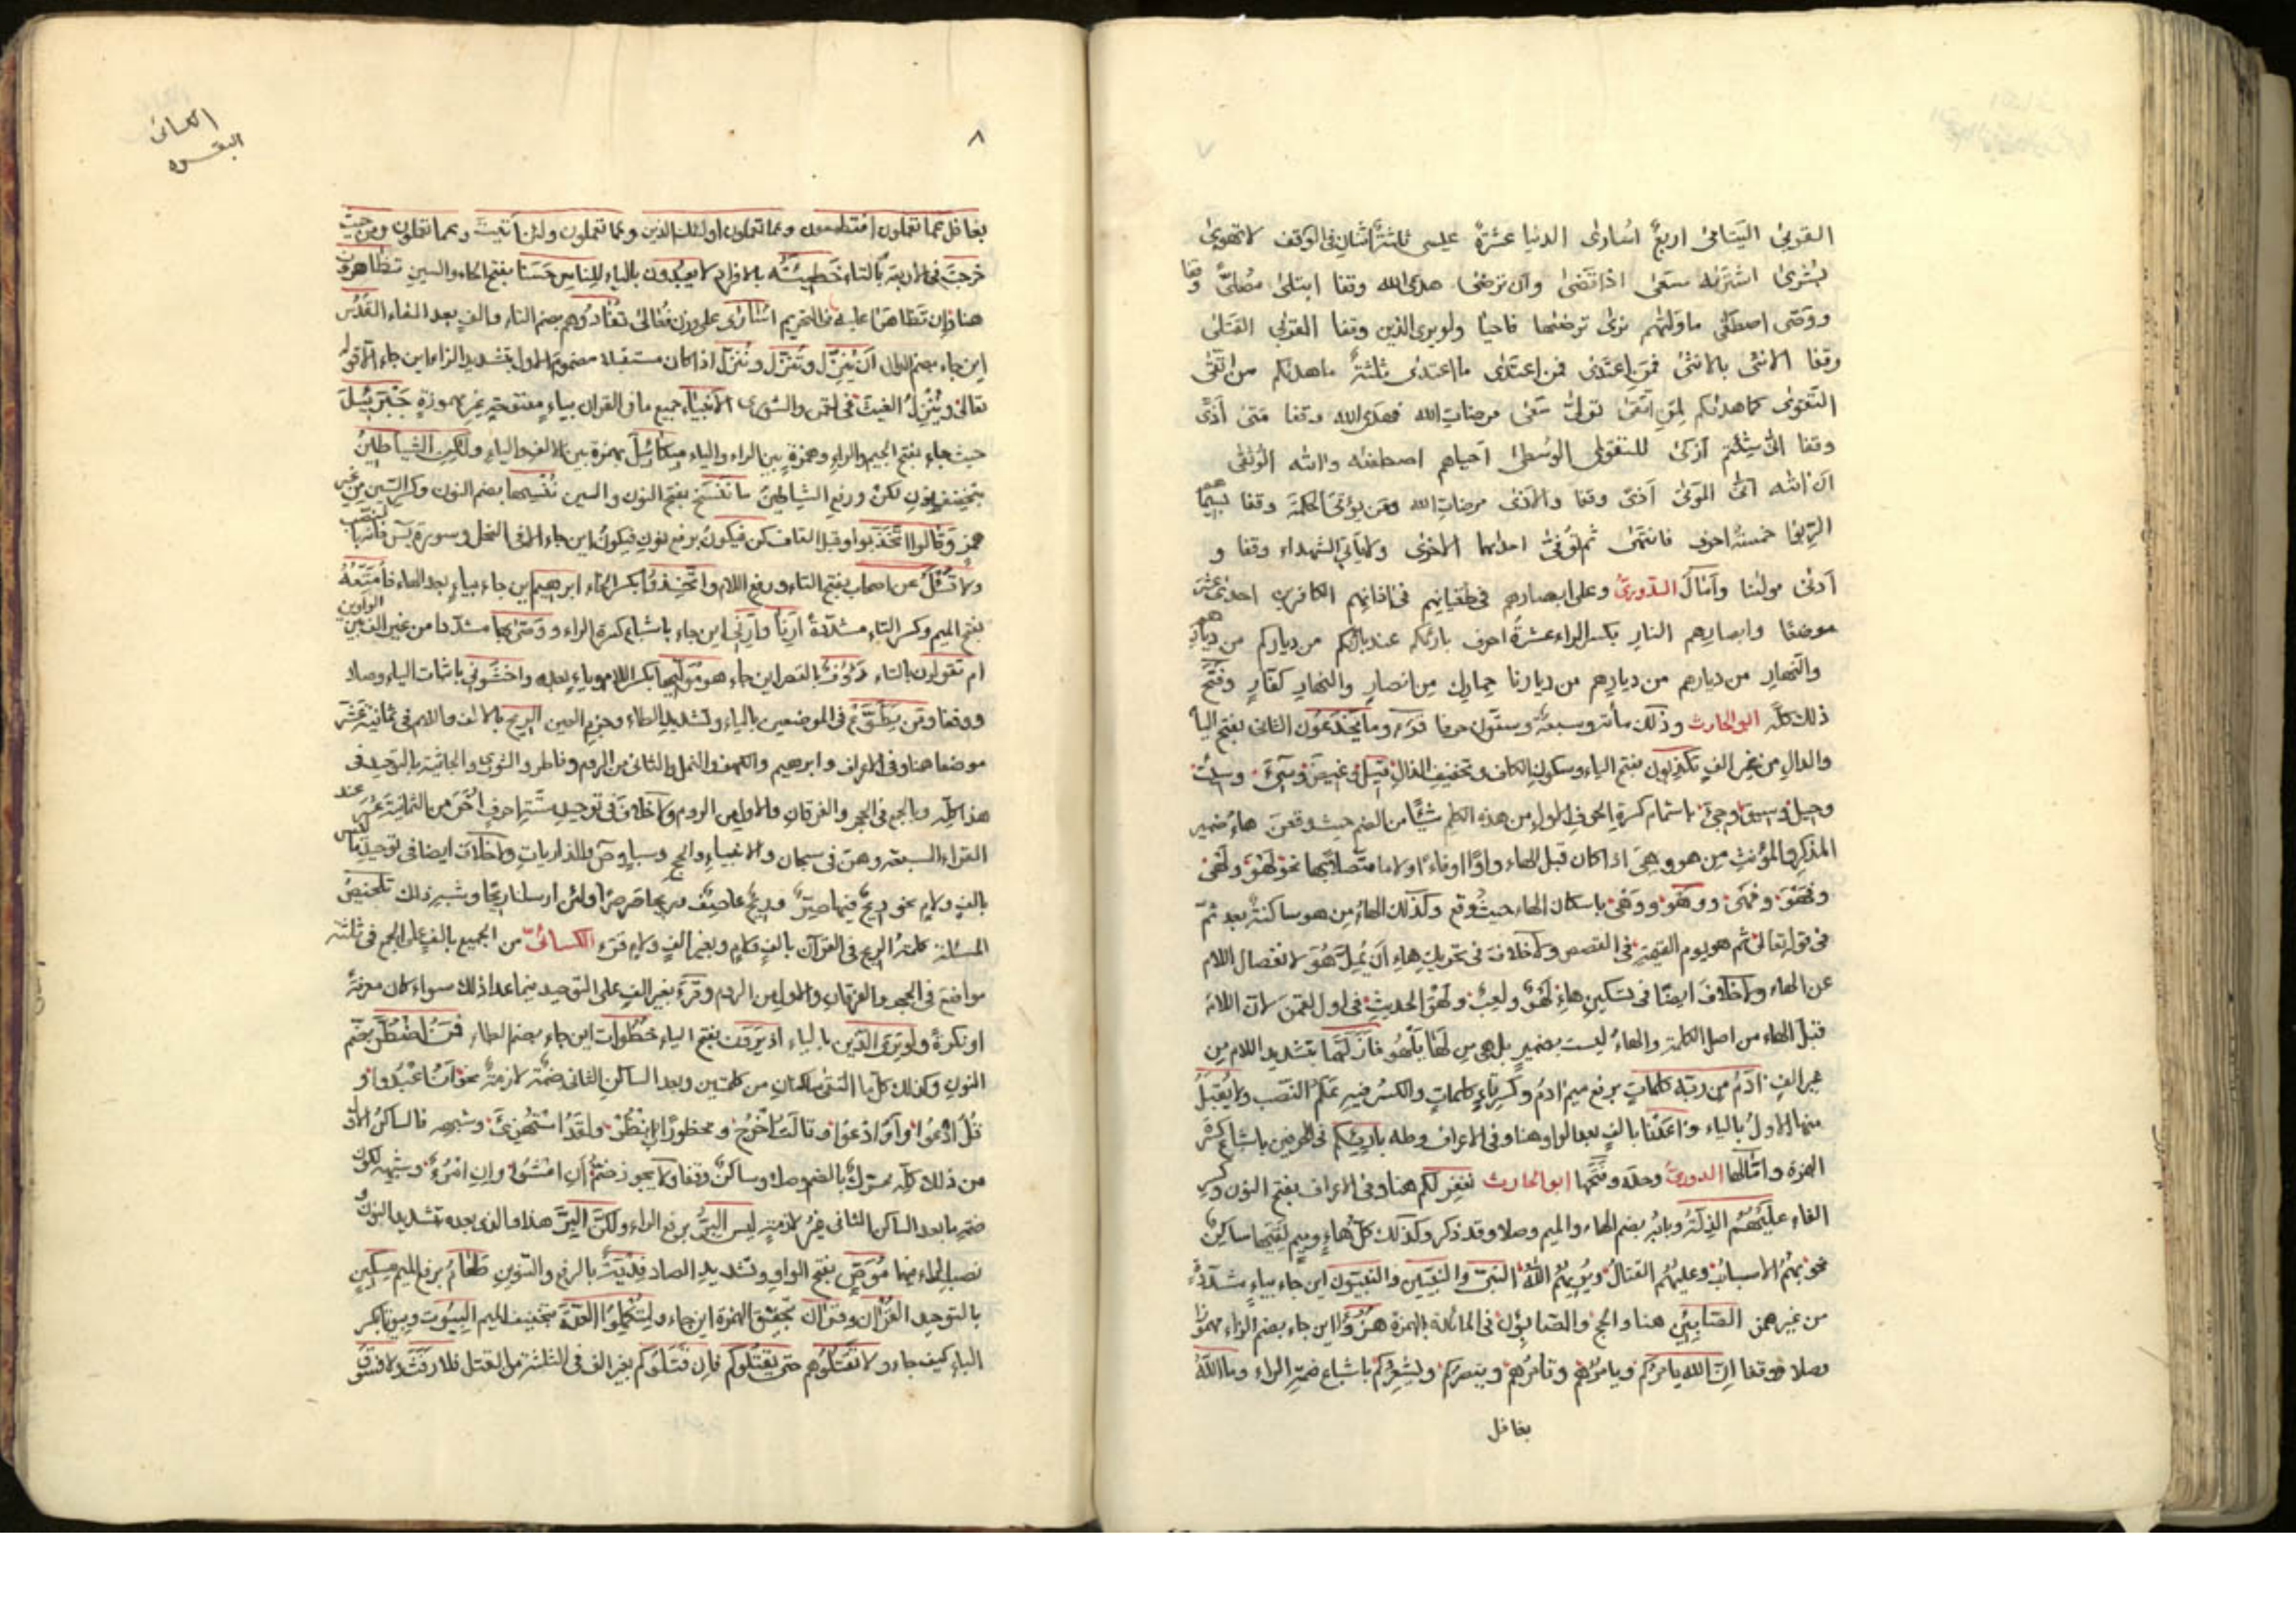 القربى اليتامى اربع اسارى الدنيا عشرة عيسى ثلثة اثنان فى الوقف لا تهوى
بشرى اشتريه سعى اذا قضى وان ترضى هدى الله وقفا ابتلى مصلى وقفا
ووصى اصطفى ما وليهم نرى ترضيها فاحيا ولو يرى الذين وقفا القربى القتلى
وقفا الانثى بالانثى فمن اعتدى فمن اعتدى ما اعتدى ثلثة ما هديكم من اتقى
التقوى كما هديكم لمن اتقى تولى سعى مرضات الله فهدى الله وقفا متى اذى
وقفا انى شئتم ازكى للتقوى الوسطى احياهم اصطفيه واتيه الوثقى
ان اتيه انى الموتى اذى وقفا والاذى مرضات الله ومن يؤتى الحكمة وقفا بسيماهم
الربوا خمسة احرف فانتهى ثم توفى احديهما الاخرى ولا يأبى الشهداء وقفا و
ادنى مولينا وامال الدورى وعلى ابصارهم فى طغيانهم فى اذانهم الكافرين احدى عشر
موضعا وابصارهم النار بكسر الراء عشرة احرف بارئكم عند بارئكم من دياركم من ديارهم
والنهار من ديارهم من ديارهم من ديارنا حمارك من انصار والنهار كفار وفتح
ذلك كله ابو الحارث وذلك مأتة وسبعة وستون حرفا قرء وما يخدعون الثانى بفتح اليا
والدال من غير الف تكذبون بفتح الياء وسكون الكاف وتخفيف الذال قيل وغيض وسىء وسيئت
وحيل وسيق وجىء باشمام كسرة الحرف الاول من هذه الكلم شيئا من الضم حيث وقعن هاء ضمير
المذكر والمؤنث من هو وهى اذا كان قبل الهاء واوا او فاء او لاما متصلا بها نحو لهو ولهى
وفهو وفهى ووهو ووهى باسكان الهاء حيث وقع وكذلك الهاء من هو ساكنة بعد ثم
فى قوله تعالى ثم هو يوم القيمة فى القصص ولا خلاف فى تحريك هاء ان يمل هو لانفصال اللام
عن الهاء ولا خلاف ايضا فى تسكين هاء لهو ولعب ولهو الحديث فى اول لقمن لان اللام
قبل الهاء من اصل الكلمة والهاء ليست بضمير بل هى من لها يلهو فازلهما بتشديد اللام من
غير الف ادم من ربه كلمات برفع ميم ادم وكسر تاء كلمات والكسر فيه علم النصب ولا يقبل
منها الاول بالياء واعدنا بالف بعد الواو هنا وفى الاعراف وطه بارئكم فى الحرفين باشباع كسرة
الهمزة وامالها الدورى وحده وفتحها ابو الحارث نغفر لكم هنا وفى الاعراف بفتح النون وكسر
الفاء عليهم الذلة وبابه بضم الهاء والميم وصلا وقد ذكر وكذلك كل هاء وميم لقيهما ساكن
نحو بهم الاسباب وعليهم القتال ويريهم الله النبى والنبيين والنبيون اين جاء بياء مشددة
من غير همز الصابئين هنا والحج والصابؤن فى المائدة بالهمزة هزؤا اين جاء بضم الزاء مهموزا
وصلا ووقفا ان الله يامركم ويامرهم وتامرهم وينصركم ويشعركم باشباع ضمة الراء وما الله
بغافل
الكسائى
البقره
٨
بغافل عما تعملون افتطمعون وعما تعملون اولئك الذين وعما تعملون ولئن اتيت وعما تعملون ومن حيث
خرجت فى الاربعة بالتاء خطيئته بالافراد لا يعبدون بالياء للناس حسنا بفتح الحاء والسين تظاهرون
هنا وان تظاهرا عليه فى التحريم اسارى على وزن فعالى تفادوهم بضم التاء والف بعد الفاء القدس
اين جاء بضم الدال ان ينزل وتنزل وننزل اذا كان مستقبلا مضموم الاول بتشديد الزاء اين جاء الا قوله
تعالى وينزل الغيث فى لقمن والشورى الانبياء جميع ما فى القران بياء مفتوحة غير مهموزة جبرئيل
حيث جاء بفتح الجيم والراء وهمزة بين الراء والياء ميكائيل بهمزة بين الالف والياء ولكن الشياطين
بتخفيف نون لكن ورفع الشياطين ما ننسخ بفتح النون والسين ننسها بضم النون وكسر السين من غير
همز وقالوا اتخذ بواو قبل القاف كن فيكون برفع نون فيكون اين جاء الا فى النحل وسورة يس فانهما بنصب
ولا تسئل عن اصحاب بفتح التاء ورفع اللام واتخذوا بكسر الخاء ابرهيم اين جاء بياء بعد الهاء فامتعه
بفتح الميم وكسر التاء مشددة ارنا وارنى اين جاء باشباع كسرة الراء ووصى بها مشددا من غير الف بين الواوين
ام تقولون بالتاء رؤف بالقصر اين جاء هو موليها بكسر اللام وياء بعده واخشونى باثبات الياء وصلا
ووقفا ومن يطوع فى الموضعين بالياء وتشديد الطاء وجزم العين الريح بالالف والام فى ثمانية عشر
موضعا هنا وفى الاعراف وابرهيم والكهف والنمل والثانى من الروم وفاطر والشورى والجاثية بالتوحيد فى
هذا كله وبالجمع فى الحجر والفرقان والاول من الروم ولا خلاف فى توحيد ستة احرف اخر من الثمانية عشر عند
القراء السبعة وهن فى سبحان والانبياء والحج وسبا وص والذاريات ولا خلاف ايضا فى توحيد ما ليس
بالف ولام نحو ريح فيها صر وريح عاصف وريحا صرصرا ولئن ارسلنا ريحا وشبه ذلك تلخيص
المسئلة كلمة الريح فى القرآن بالف ولام وبغير الف ولام قرء الكسائى من الجميع بالف على الجمع فى ثلثة
مواضع فى الحجر والفرقان والاول من الروم وقرء بغير الف على التوحيد فيما عدا ذلك سواء كان معرفة
او نكرة ولو يرى الذين بالياء اذ يرون بفتح الياء خطوات اين جاء بضم الطاء فمن اضطر بضم
النون وكذلك كل ما التقى ساكنان من كلمتين وبعد الساكن الثانى ضمة لازمة نحو ان اعبدوا و
قل ادعوا واو ادعوا وقالت اخرج ومحظورا انظر ولقد استهزئ وشبهه فالساكن الاول
من ذلك كله محرك بالضم وصلا وساكن وقفا ولا يجوز ضم ان امشوا وان امرؤ وشبهه لكون
ضمة ما بعد الساكن الثانى غير لازمة ليس البر برفع الراء ولكن البر هذا والذى بعده بتشديد النون و
نصب الراء فيهما موص بفتح الواو وتشديد الصاد فدية بالرفع والتنوين طعام برفع الميم مسكين
بالتوحيد القرآن وقرآن بتحقيق الهمزة اين جاء ولتكملوا العدة بتخفيف الميم البيوت وبيوتا بكسر
الباء كيف جاء ولا تقتلوهم حتى يقتلوكم فان قتلوكم بغير الف فى الثلثة من القتل فلا رفث ولا فسوق